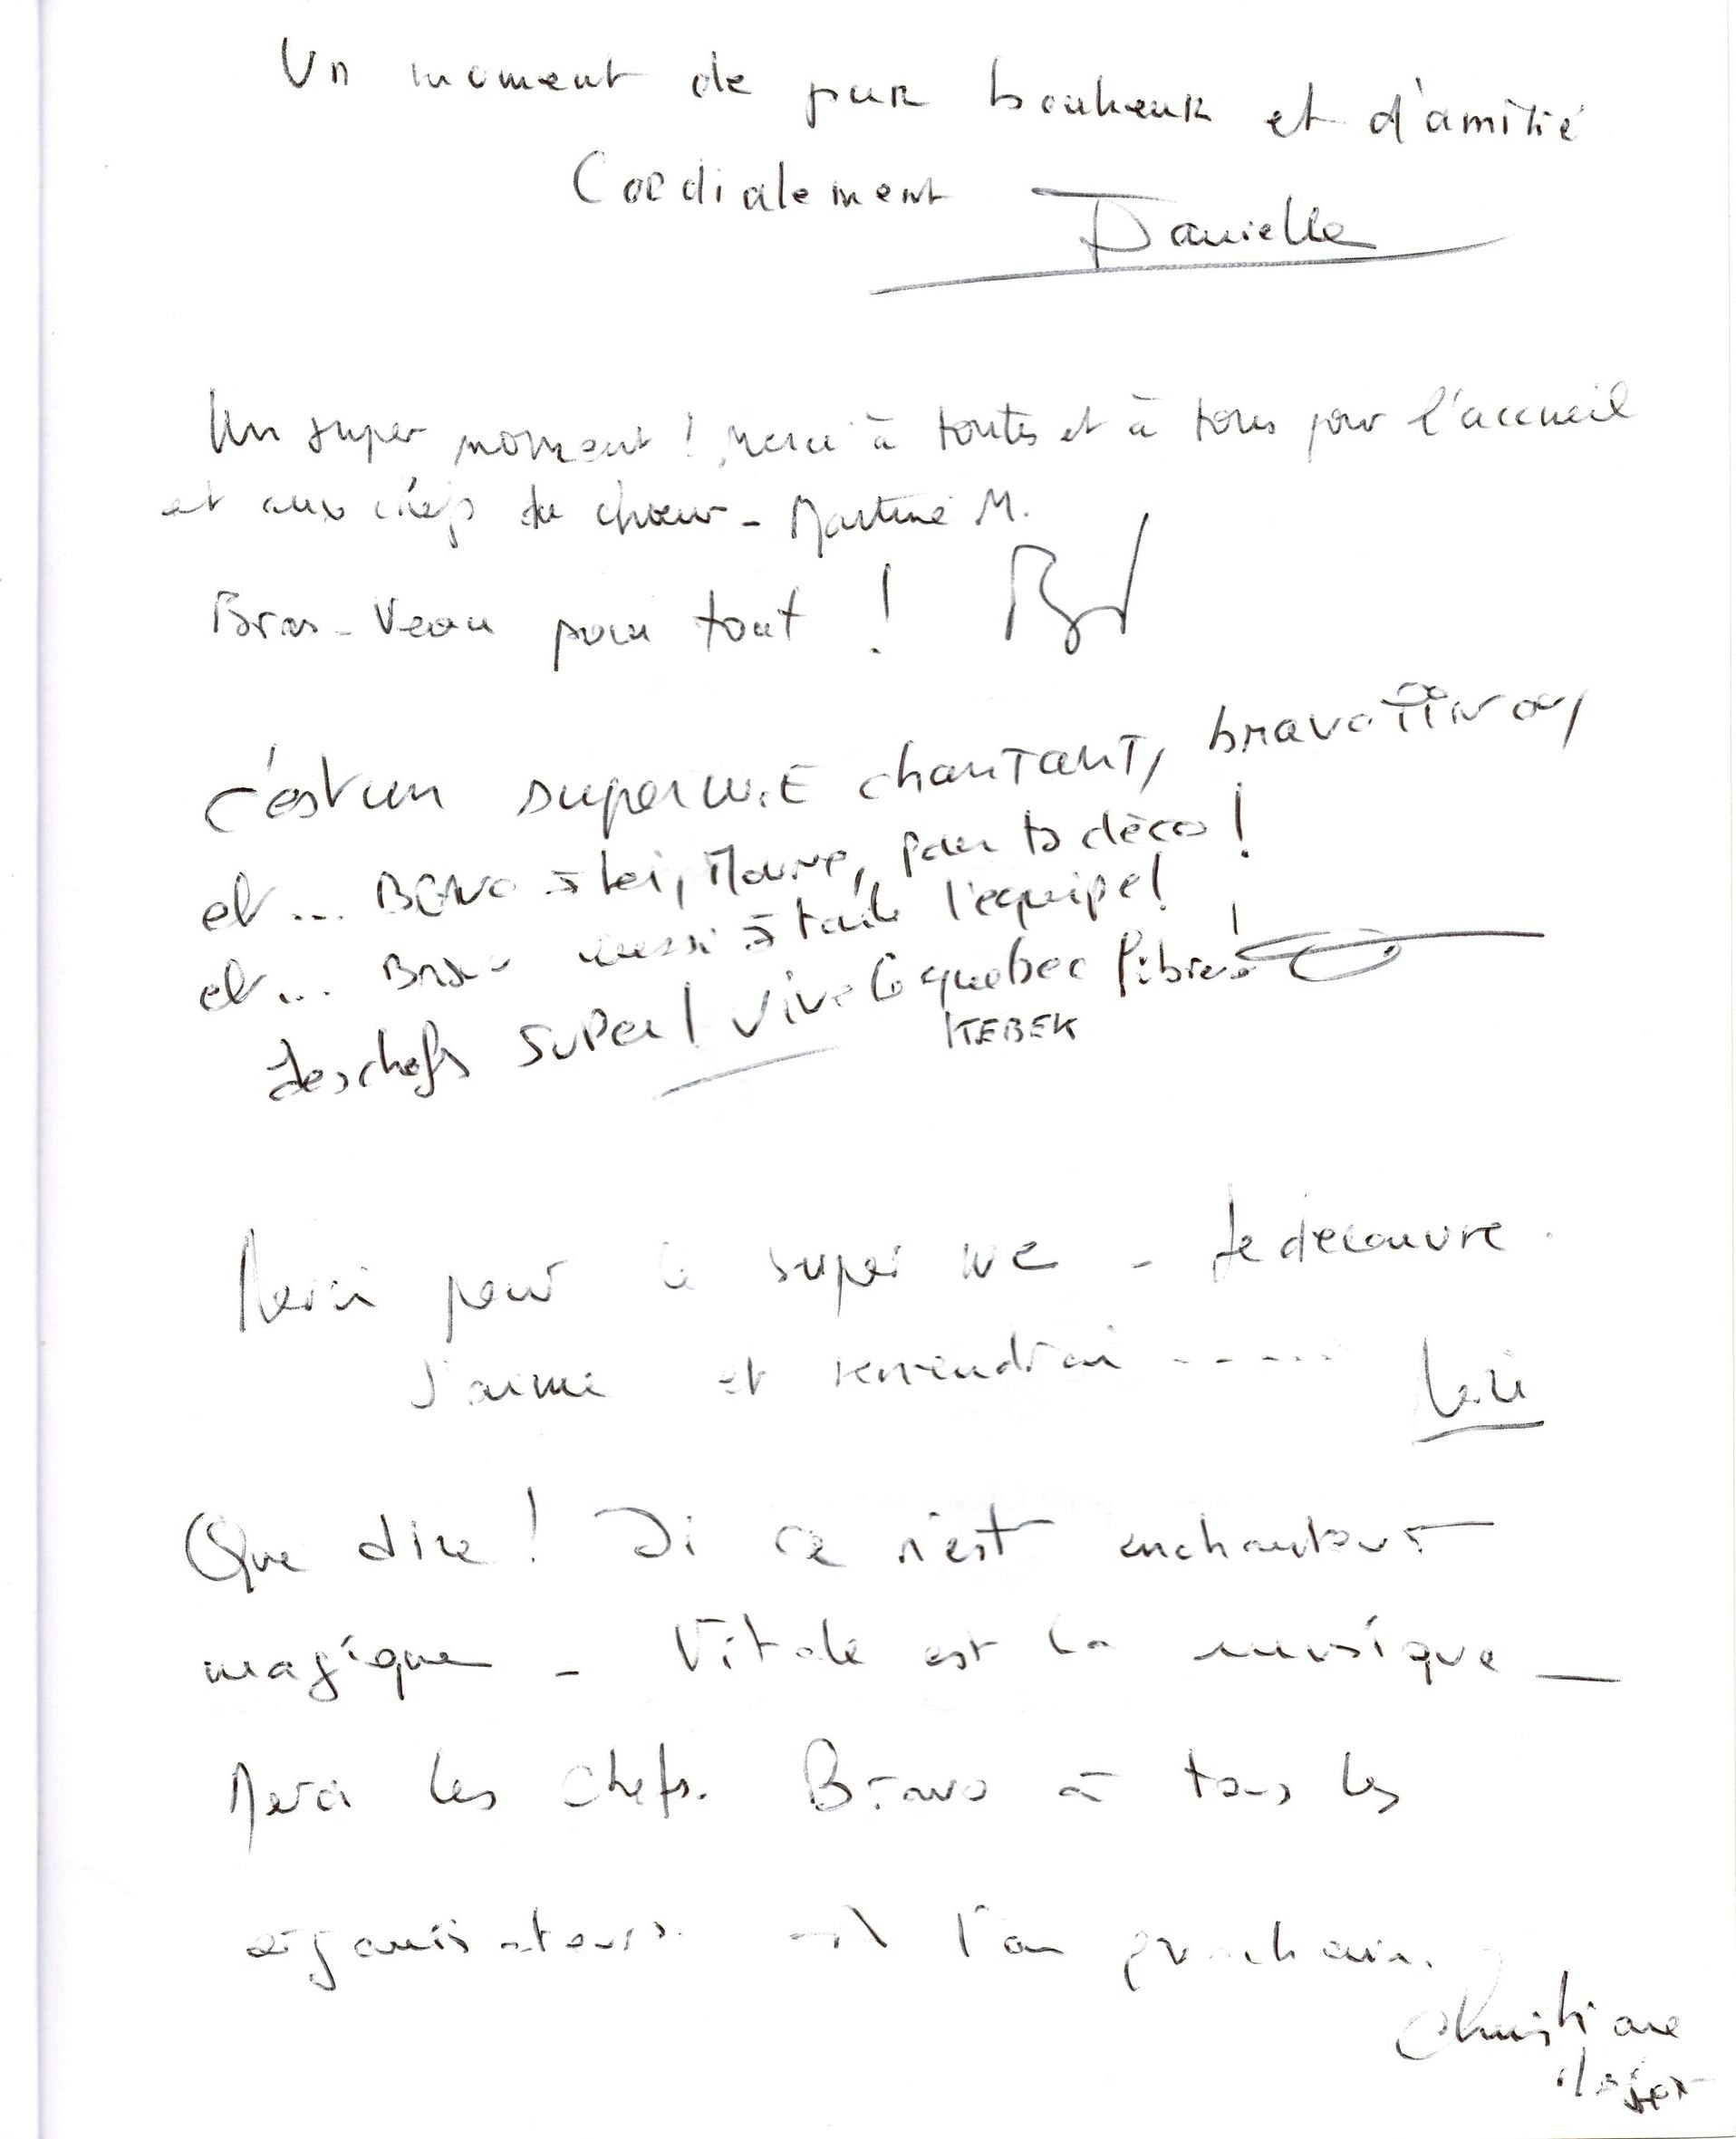 Un moment de pur bonheur et d'amitié
Cordialement Danielle
Un super moment ! Merci à toutes et à tous pour l'accueil
et aux chefs de chœur - Martine M.
Bras-Veau pour tout !
C'est un super W.E chantant, bravo
et ... Bravo à toi, pour ta déco !
et ... Bravo aussi à toute l'équipe !
des chefs super ! Vive le quebec libre !
KEBEK
Merci pour le super WE - Je découvre.
J'aime et reviendrai -----
Que dire ! Si ce n'est enchantant
magique - Vitale est la musique -
Merci les chefs. Bravo à tous les
organisateurs. à l'an prochain.
Christiane